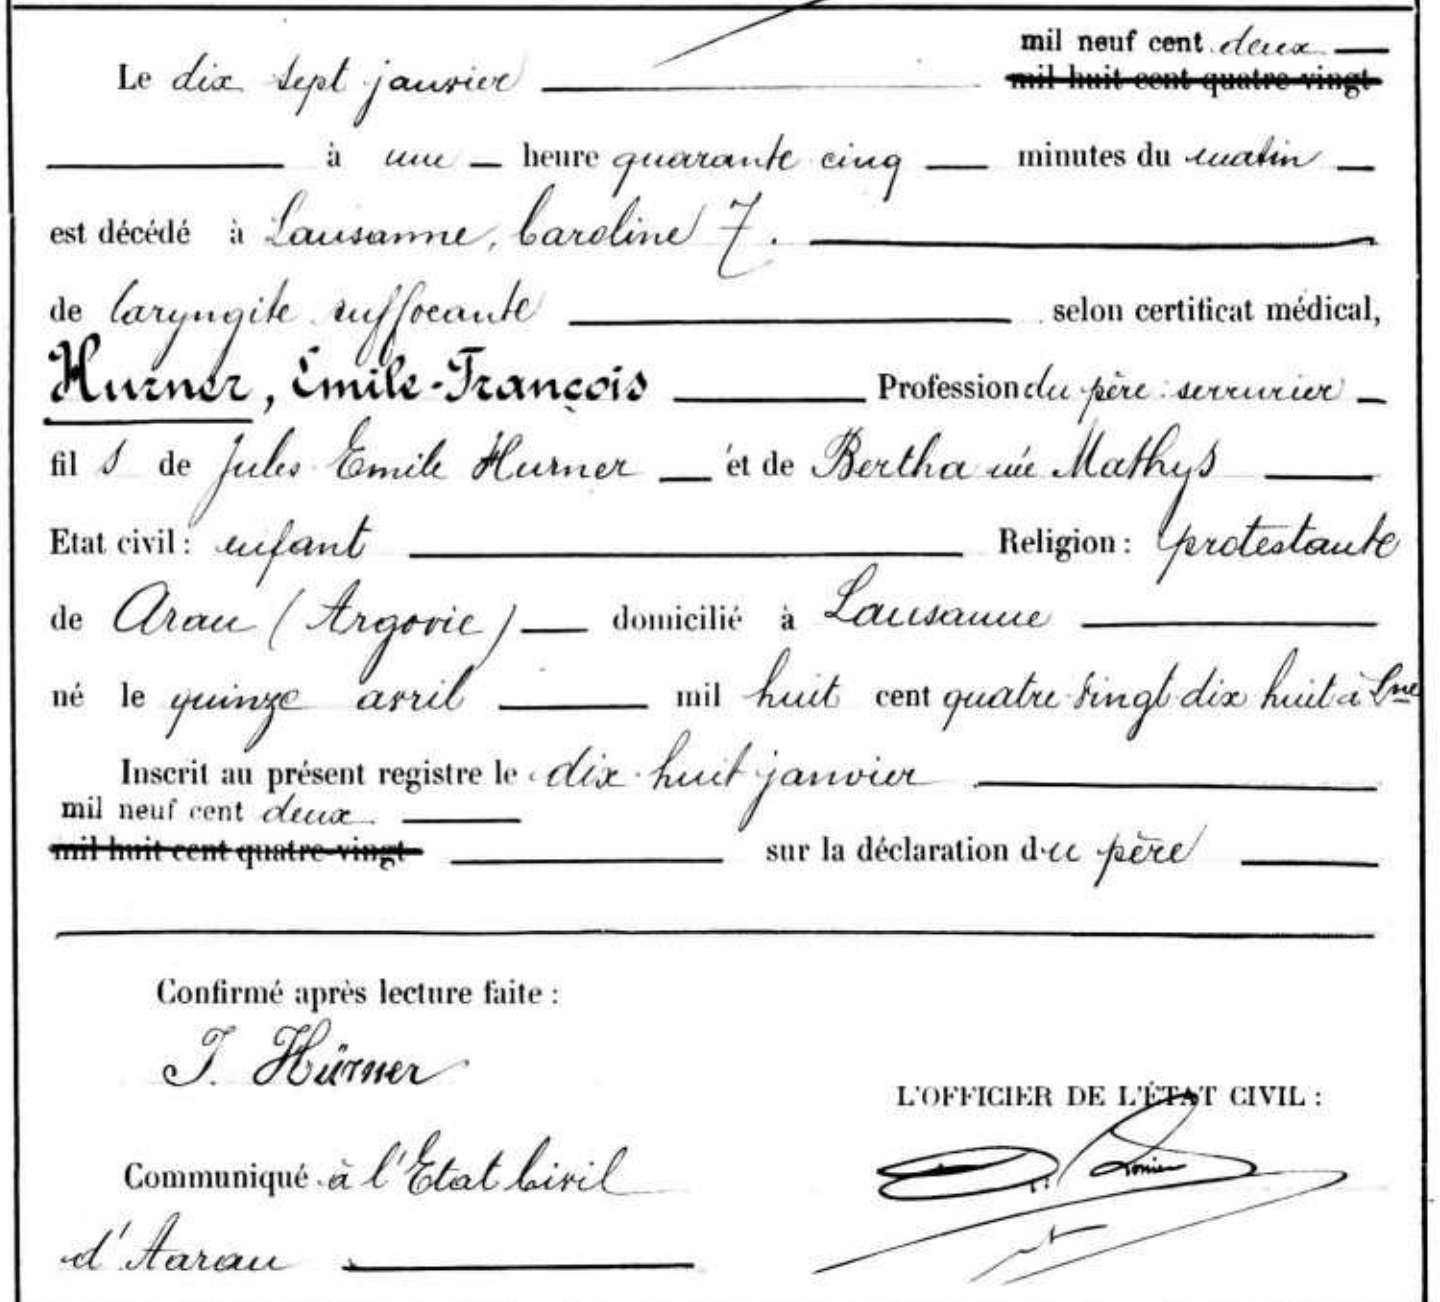 mil neuf cent deux
Le dix sept janvier mil huit cent quatre-vingt
à une heure quarante cinq minutes du matin
est décédé à Lausanne, Caroline 7.
de laryngite suffocante selon certificat médical,
Hurner, Emile-François Profession du père : serrurier
fil s de Jules Emile Hurner et de Bertha née Mathys
Etat civil : enfant Religion : protestante
de Arau (Argovie) domicilié à Lausanne
né le quinze avril mil huit cent quatre vingt dix huit à Lne
Inscrit au présent registre le dix-huit janvier
mil neuf cent deux
mil huit cent quatre-vingt sur la déclaration du père
Confirmé après lecture faite :
J. Hürner
L'OFFICIER DE L'ÉTAT CIVIL :
Communiqué à l'Etat Civil
d'Aarau